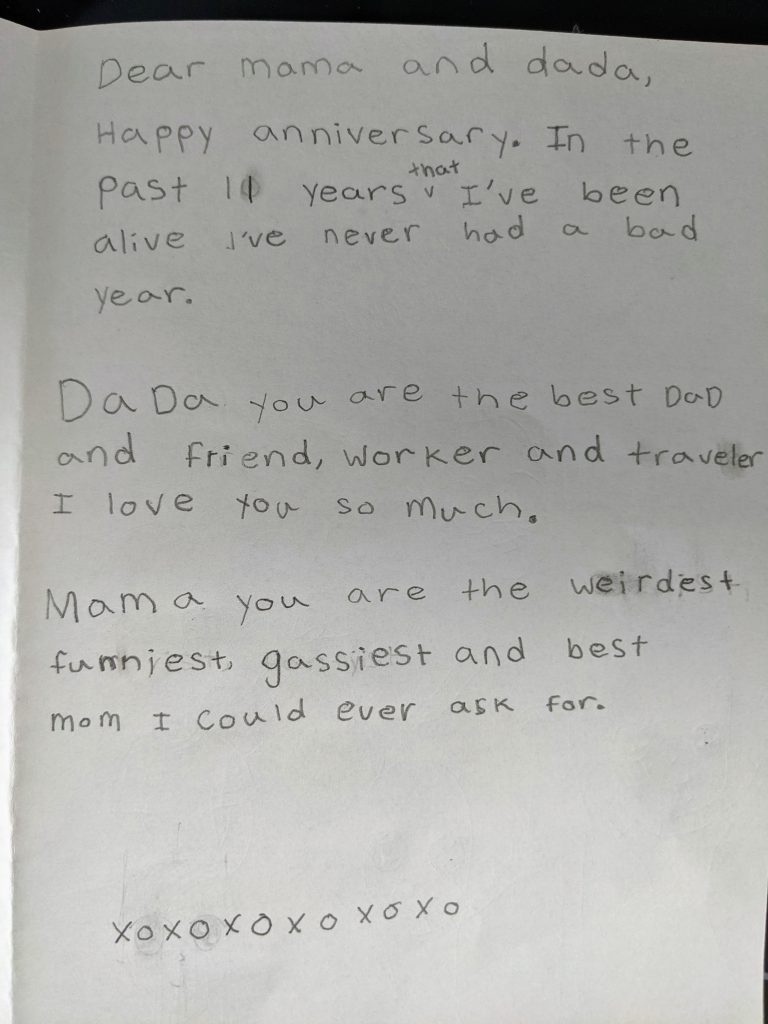 Dear mama and dada,
Happy anniversary. In the
past 11 years that I've been
alive I've never had a bad
year.
DaDa you are the best DaD
and friend, worker and traveler
I love you so much.
Mama you are the weirdest
funniest, gassiest and best
mom I could ever ask for.
xoxoxoxoxoxo